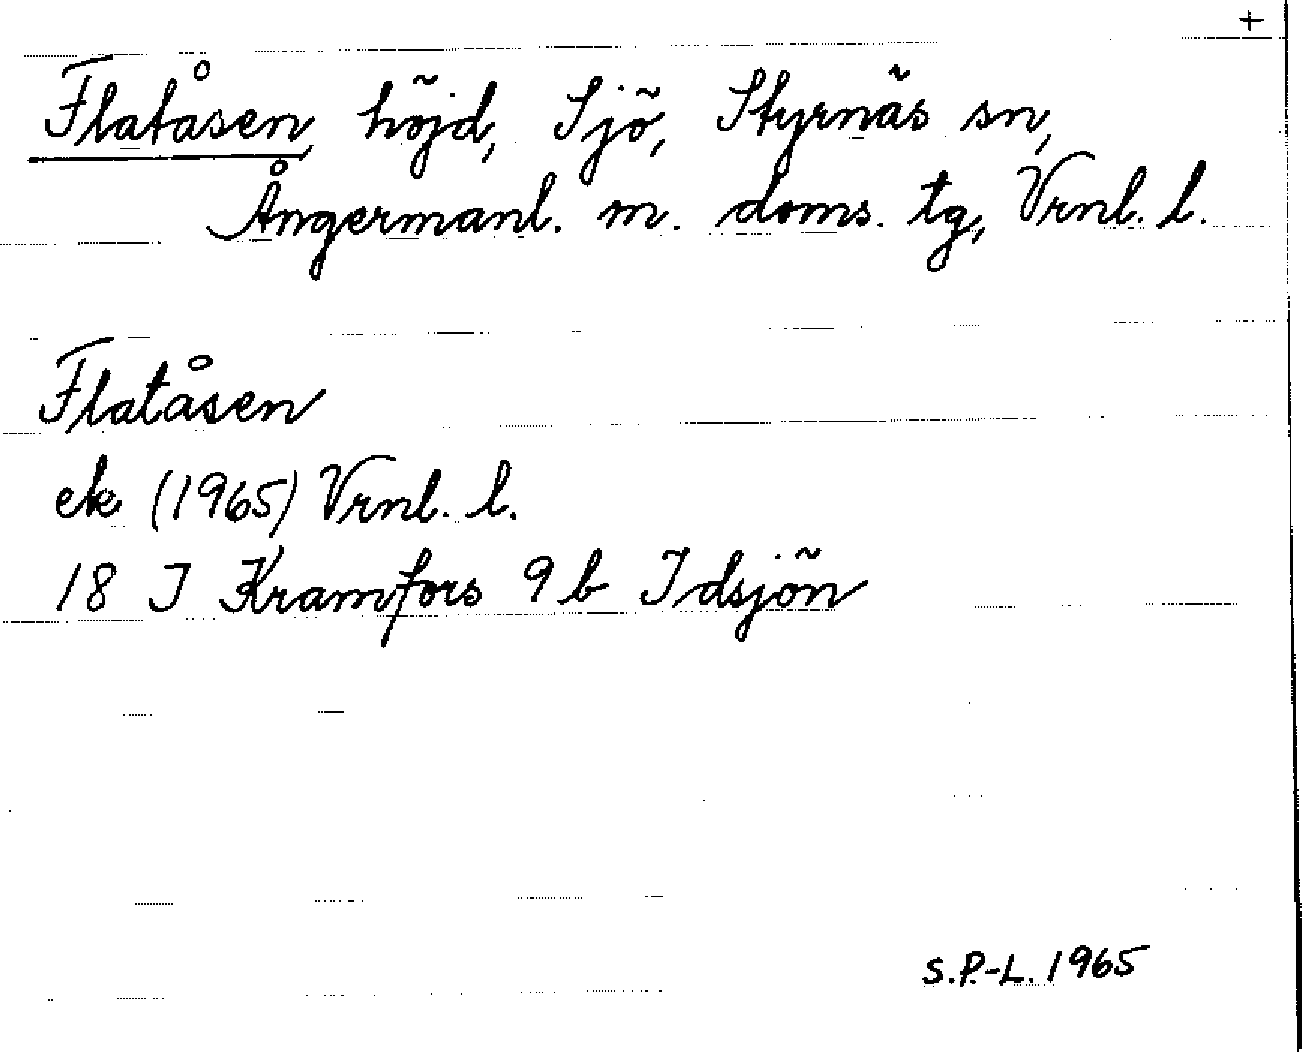 +
Flatåsen, höjd, Sjö, Styrnäs sn,
Ångermanl. m. doms. tg, Vrnl. l.
Flatåsen
ek (1965) Vrnl. l.
18 I Kramfors 9 b Idsjön
S.P.-L. 1965